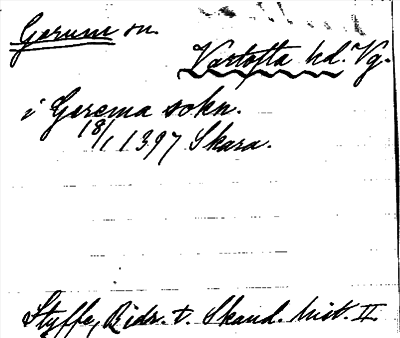 Gerum sn.
Vartofta hd. Vg.
i Gerema sokn.
18/1 1397 Skara.
Styffe, Bidr. t. Skand. hist. II